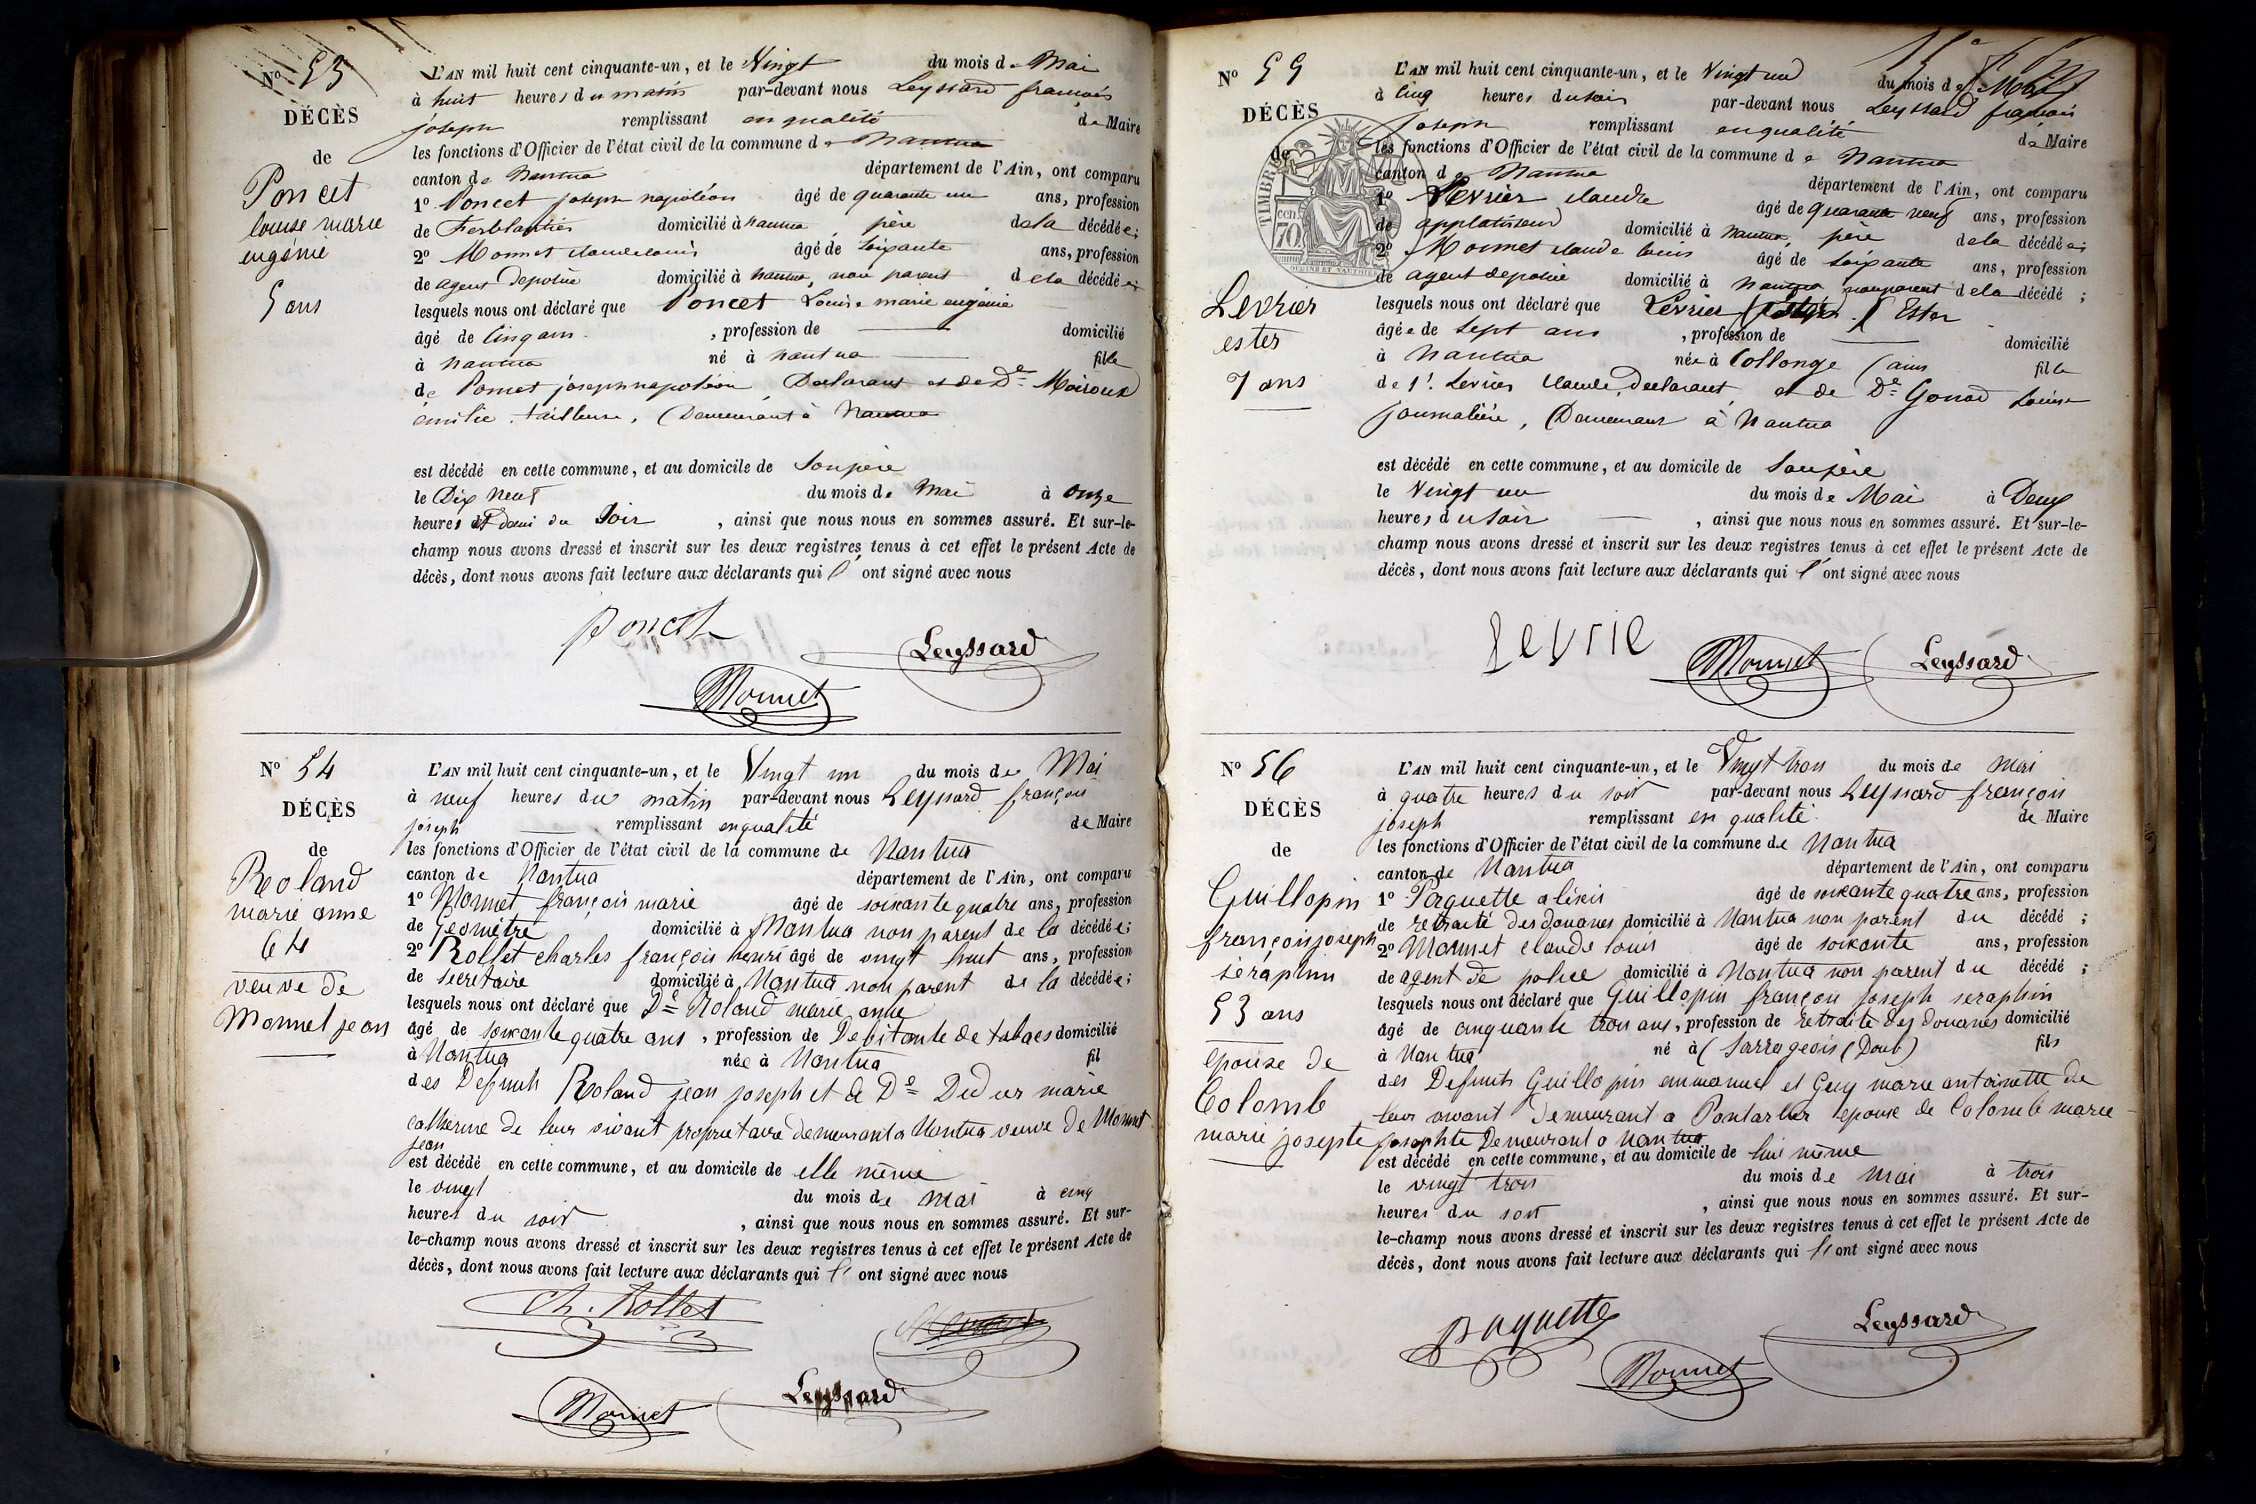 Nº 53
DÉCÈS
de
Poncet
louise marie
eugénie
5 ans
L'AN mil huit cent cinquante-un, et le Vingt du mois de Mai
à huit heures du matin par-devant nous Leyssard françois
joseph remplissant en qualité de Maire
les fonctions d'Officier de l'état civil de la commune de Nantua
canton de Nantua département de l'Ain, ont comparu
1º Poncet joseph napoléon âgé de quarante un ans, profession
de Ferblantier domicilié à nantua père de la décédée;
2º Monnet claude louis âgé de soixante ans, profession
de agent de police domicilié à nantua, non parent de la décédée;
lesquels nous ont déclaré que Poncet Louise marie eugénie
âgé de Cinq ans , profession de domicilié
à nantua né à nantua fille
de Poncet joseph napoléon Déclarant et de De Moiroud
émilie tailleuse, Demeurant à Nantua
est décédé en cette commune, et au domicile de son père
le Dix neuf du mois de Mai à onze
heures et demi du Soir , ainsi que nous nous en sommes assuré. Et sur-le-
champ nous avons dressé et inscrit sur les deux registres tenus à cet effet le présent Acte de
décès, dont nous avons fait lecture aux déclarants qui l' ont signé avec nous
Poncet
Leyssard
Monnet
Nº 54
DÉCÈS
de
Roland
marie anne
64
veuve de
Monnet jean
L'AN mil huit cent cinquante-un, et le Vingt un du mois de Mai
à neuf heures du matin par-devant nous Leyssard françois
joseph remplissant en qualité de Maire
les fonctions d'Officier de l'état civil de la commune de Nantua
canton de Nantua département de l'Ain, ont comparu
1º Monnet françois marie âgé de soixante quatre ans, profession
de Géomètre domicilié à Nantua non parent de la décédée;
2º Rollet charles françois henri âgé de vingt huit ans, profession
de secretaire domicilié à Nantua non parent de la décédée;
lesquels nous ont déclaré que De Roland marie anne
âgé de soixante quatre ans , profession de Debitante de tabacs domicilié
à Nantua née à Nantua fil
des Defunts Roland jean joseph et de De Didier marie
catherine de leur vivant proprietaire demeurant a Nantua veuve de Monnet
jean
est décédé en cette commune, et au domicile de elle même
le vingt du mois de mai à cinq
heures du soir , ainsi que nous nous en sommes assuré. Et sur-
le-champ nous avons dressé et inscrit sur les deux registres tenus à cet effet le présent Acte de
décès, dont nous avons fait lecture aux déclarants qui l' ont signé avec nous
Ch. Rollet
Monnet
Leyssard
Nº 55
DÉCÈS
de
Levrier
ester
7 ans
TIMBRE
cen. 70
L'AN mil huit cent cinquante-un, et le Vingt un du mois de Mai
à Cinq heures du soir par-devant nous Leyssard françois
joseph remplissant en qualité de Maire
les fonctions d'Officier de l'état civil de la commune de Nantua
canton de Nantua département de l'Ain, ont comparu
1º Levrier claude âgé de quarante neuf ans, profession
de applatisseur domicilié à nantua, père de la décédée;
2º Monnet claude louis âgé de soixante ans, profession
de agent de police domicilié à nantua non parent de la décédé ;
lesquels nous ont déclaré que Levrier Ester
âgée de Sept ans , profession de domicilié
à Nantua née à Collonge (ain fille
de Sr. Levrier Claude Declarant, et de De Gonod Louise
journalière, Demeurant à Nantua
est décédé en cette commune, et au domicile de son père
le Vingt un du mois de Mai à Deux
heures du soir , ainsi que nous nous en sommes assuré. Et sur-le-
champ nous avons dressé et inscrit sur les deux registres tenus à cet effet le présent Acte de
décès, dont nous avons fait lecture aux déclarants qui l' ont signé avec nous
Levrie
Monnet
Leyssard
Nº 56
DÉCÈS
de
Guillopin
françois joseph
séraphin
53 ans
epouse de
Colomb
marie josepte
L'AN mil huit cent cinquante-un, et le Vingt trois du mois de Mai
à quatre heures du soir par-devant nous Leyssard françois
joseph remplissant en qualité de Maire
les fonctions d'Officier de l'état civil de la commune de Nantua
canton de Nantua département de l'Ain, ont comparu
1º Paquette alexis âgé de soixante quatre ans, profession
de retraité des douanes domicilié à Nantua non parent du décédé ;
2º Monnet claude louis âgé de soixante ans, profession
de agent de police domicilié à Nantua non parent du décédé ;
lesquels nous ont déclaré que Guillopin françois joseph seraphin
âgé de cinquante trois ans, profession de retraite des douanes domicilié
à Nantua né à (Sarrogeois (Doub) fils
des Defunts Guillopin emmanuel et Guy marie antoinette de
leur vivant Demeurant a Pontarlier epoux de Colomb marie
josephte Demeurant a Nantua
est décédé en cette commune, et au domicile de lui même
le vingt trois du mois de Mai à trois
heures du soir , ainsi que nous nous en sommes assuré. Et sur-
le-champ nous avons dressé et inscrit sur les deux registres tenus à cet effet le présent Acte de
décès, dont nous avons fait lecture aux déclarants qui l' ont signé avec nous
Paquette
Leyssard
Monnet